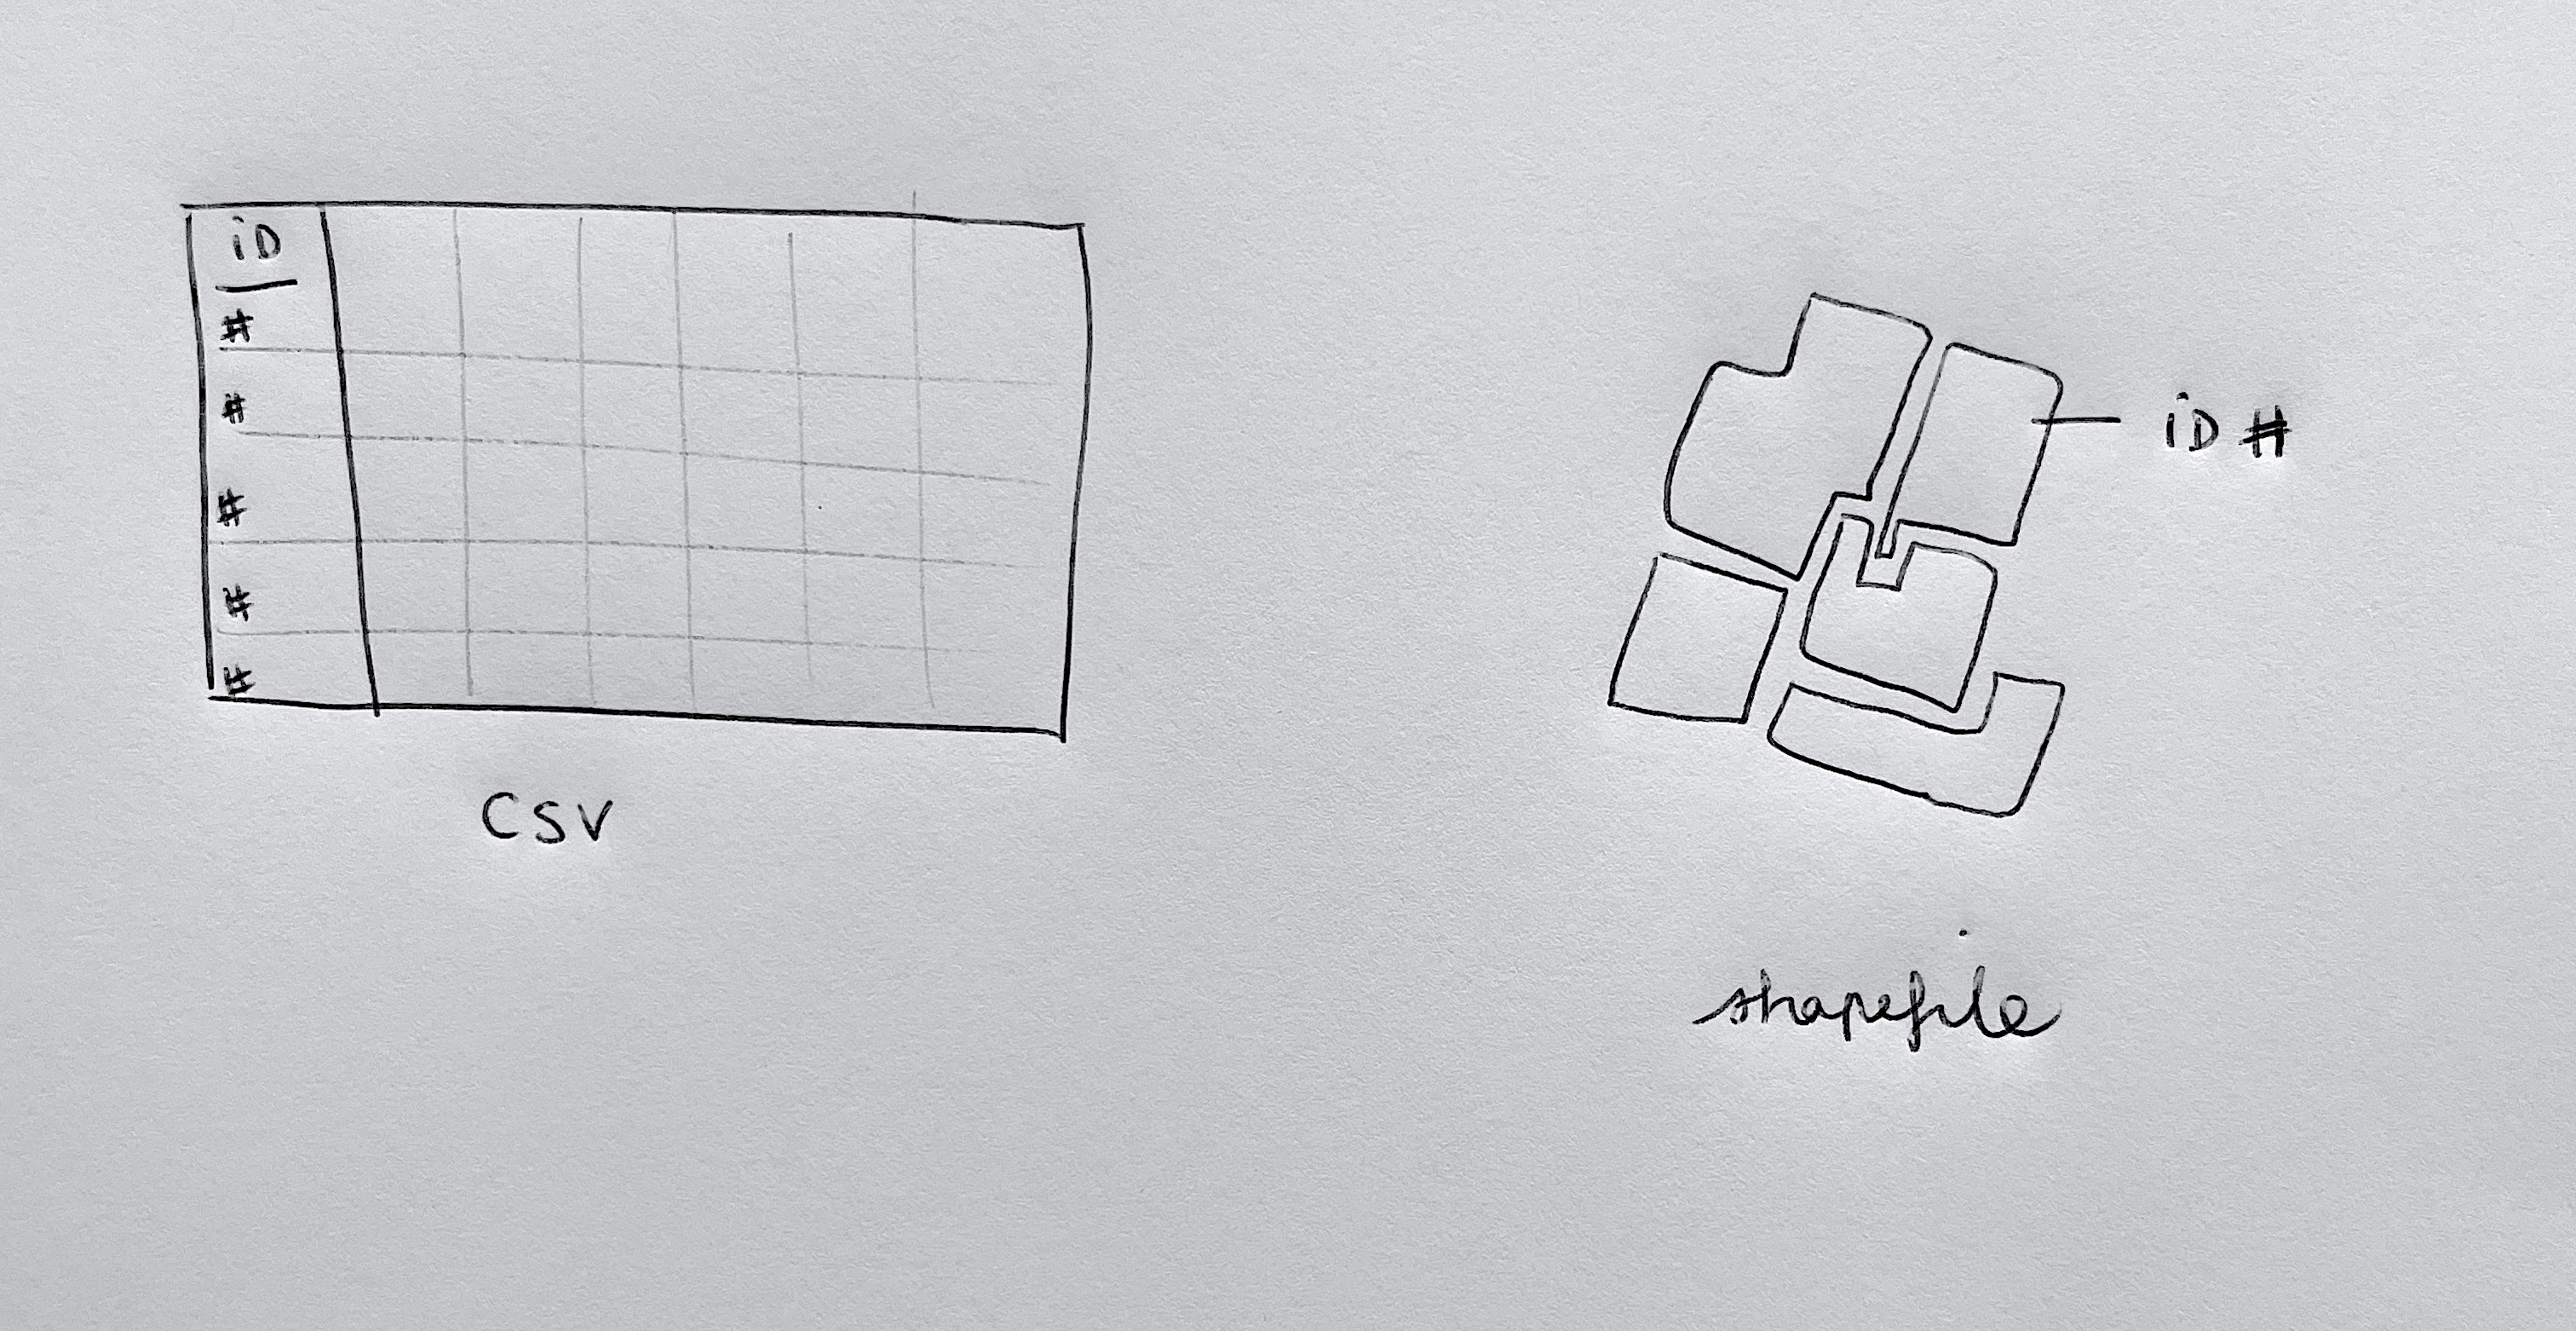 iD
#
#
#
#
#
CSV
iD #
shapefile